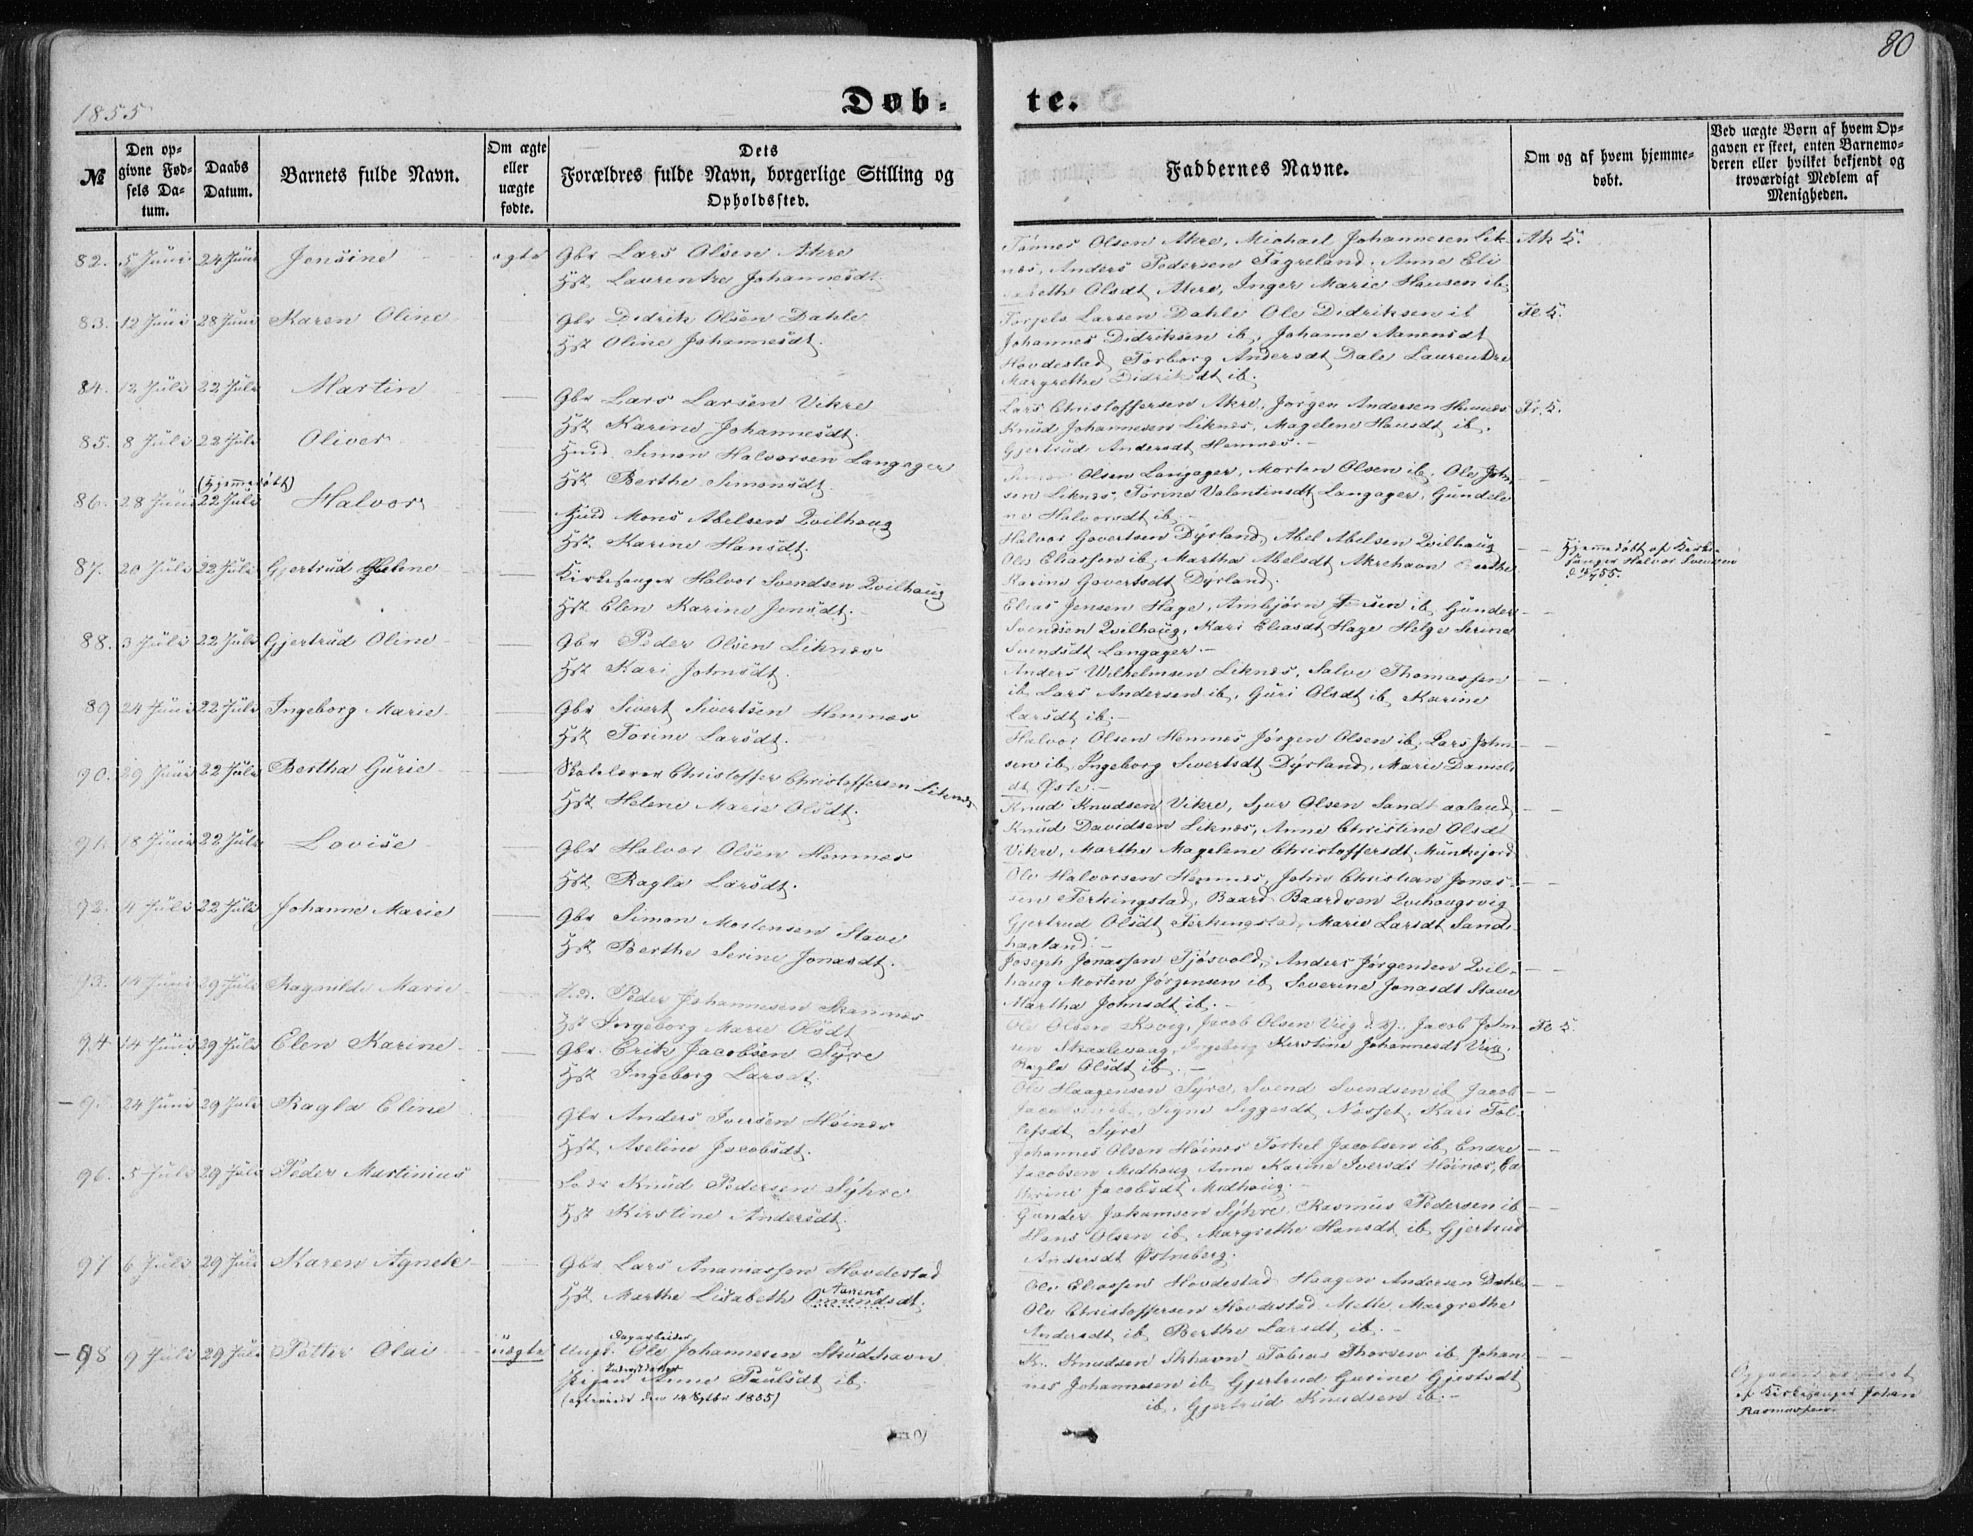 80
1855
Døb-
te.
№
Den op-
givne Fød-
sels Da-
tum.
Daabs
Datum.
Barnets fulde Navn.
Om ægte
eller
uægte
fødte.
Dets
Forældres fulde Navn, borgerlige Stilling og
Opholdssted.
Faddernes Navne.
Om og af hvem hjemme-
døbt.
Ved uægte Børn af hvem Op-
gaven er skeet, enten Barnemo-
deren eller hvilket bekjendt og
troværdigt Medlem af
Menigheden.
82. 5 Juni 24 Juni Jensine ægte Gbr Lars Olsen Akre
Hst Laurentze Johannesdt.
Tønnes Olsen Akre, Michael Johannesen Lik-
nes, Anders Pedersen Fagreland, Anne Eli
sabeth Olsdt Akre, Inger Marie Hansen ib.
83. 12 Juni 28 Juni Karen Oline Gbr Didrik Olsen Dahle
Hst Oline Johannesdt.
Torjels Larsen Dahle Ole Didriksen ib
Johannes Didriksen ib, Johanne Aanensdt
Hovdestad Torborg Andersdt Dale Laurentze
Margrethe Didriksdt ib.
84. 12 Juli 22 Juli Martin Gbr Lars Larsen Vikre
Hst Karine Johannesdt.
Lars Christoffersen Akre, Jørgen Andersen Hemnes
Knud Johannesen Liknes, Magelene Hansdt ib.
Gjertrud Andersdt Hemnes.
85. 8 Juli 22 Juli Oliver Huud. Simon Halvorsen Langager
Hst Berthe Simonsdt.
Olsen Langager, Morten Olsen ib, Ole Joh
sen Liknes, Torine Valentinsdt Langager, Gundele
ne Halvorsdt ib.
(Hjemmedøbt)
86. 28 Juni 22 Juli Halvor Huud Mons Abelsen Qvilhaug
Hst Karine Hansdt.
Halvor Govertsen Dyrland, Abel Abelsen Qvilhaug
Ole Eliassen ib, Martha Abelsdt Akrehavn Berthe
Karine Govertsdt Dyrland.
Hjemmedøbt af Kirke-
sanger Halvor Svendsen
87. 20 Juli 22 Juli Gjertrud Helene Kirkesanger Halvor Svendsen Qvilhaug
Hst Elen Karine Jensdt.
Elias Jensen Hage, Ambjørn ib Gunder
Svendsen Qvilhaug, Kari Eliasdt Hage Helge Serine
Svendsdt Langager.
88. 3 Juli 22 Juli Gjertrud Oline Gbr Peder Olsen Liknes
Hst Kari Johnsdt.
Anders Wilhelmsen Liknes, Salve Thomassen
ib Lars Andersen ib, Guri Olsdt ib Karine
Larsdt ib.
89 24 Juni 22 Juli Ingeborg Marie Gbr Sivert Sivertsen Hemnes
Hst Torine Larsdt.
Halvor Olsen Hemnes Jørgen Olsen ib, Lars John
sen ib, Ingeborg Sivertsdt Dyrland, Marie Daniels
dt Øste.
90. 29 Juni 22 Juli Bertha Gurie Skolelærer Christoffer Christoffersen Liknes
Hst Helene Marie Olsdt.
Knud Knudsen Vikre, Sjur Olsen Sandhaaland
Knud Davidsen Liknes, Anne Christine Olsdt
Vikre, Marthe Magelene Christoffersdt Munkejord
91. 18 Juni 22 Juli Lovise Gbr Halvor Olsen Hemnes
Hst Ragla Larsdt.
Ole Halvorsen Hemnes, John Christian Jonas-
sen Ferkingstad, Baard Baardsen Qvihaugsvig
Gjertrud Olsdt Ferkingstad, Marie Larsdt Sand-
haaland.
92. 4 Juli 22 Juli Johanne Marie Gbr Simon Mortensen Stave
Hst Berthe Serine Jonasdt.
Joseph Jonassen Tjøsvold, Anders Jørgensen Qvil-
haug Morten Jørgensen ib, Severine Jonasdt Stave
Martha Johnsdt ib.
93. 14 Juni 29 Juli Ragnilde Marie Peder Johannesen Skannes
Hst Ingeborg Marie Olsdt
Ole Olsen Jacob Olsen Jacob John
sen Skaalevaag, Ingeborg Kirstine Johannesdt
Ragla Olsdt ib.
94 14 Juni 29 Juli Elen Karine Gbr. Erik Jacobsen Syre
Hst Ingeborg Larsdt.
Ole Haagensen Syre, Svend Svendsen ib Jacob
Jacobsen ib, Signe Siggesdt Nesset, Kari Tol-
lefsdt Syre
24 Juni 29 Juli Ragla Eline Gbr Anders Iversen Høines
Hst Aseline Jacobsdt.
Johannes Olsen Høines Torkel Jacobsen ib, Endre
Jacobsen Medhaug Anne Karine Iversdt Høines,
Jacobsdt Medhaug.
96. 5 Juli 29 Juli Peder Martinius Knud Pedersen Syhre
Hst Kirstine Andersdt.
Gunder Johannsen Syhre, Rasmus Pedersen ib
Hans Olsen ib, Margrethe Hansdt ib, Gjertrud
Andersdt Østneberg.
97 6 Juli 29 Juli Karen Agnete Gbr Lars Anamassen Hovdestad
Hst Marthe Lisabeth Omundsdt.
Ole Eliassen Hovdestad Haagen Andersen Dahle
Ole Christoffersen Hovdestad Mette Margrethe
Andersdt ib Berthe Larsdt ib.
98 9 Juli 29 Juli Petter Olai uægte Ungk. Ole Johannesen Skudehavn
Dagarbeider
Pigen Anne Paulsdt ib.
1855)
K. Knudsen Skhavn Tobias Thorsen ib Johan
nes Johannesen ib Gjertrud Gurine Gjertsdt
ib, Gjertrud Knudsen ib.
af Kirkesanger Johan
Rasmussen.